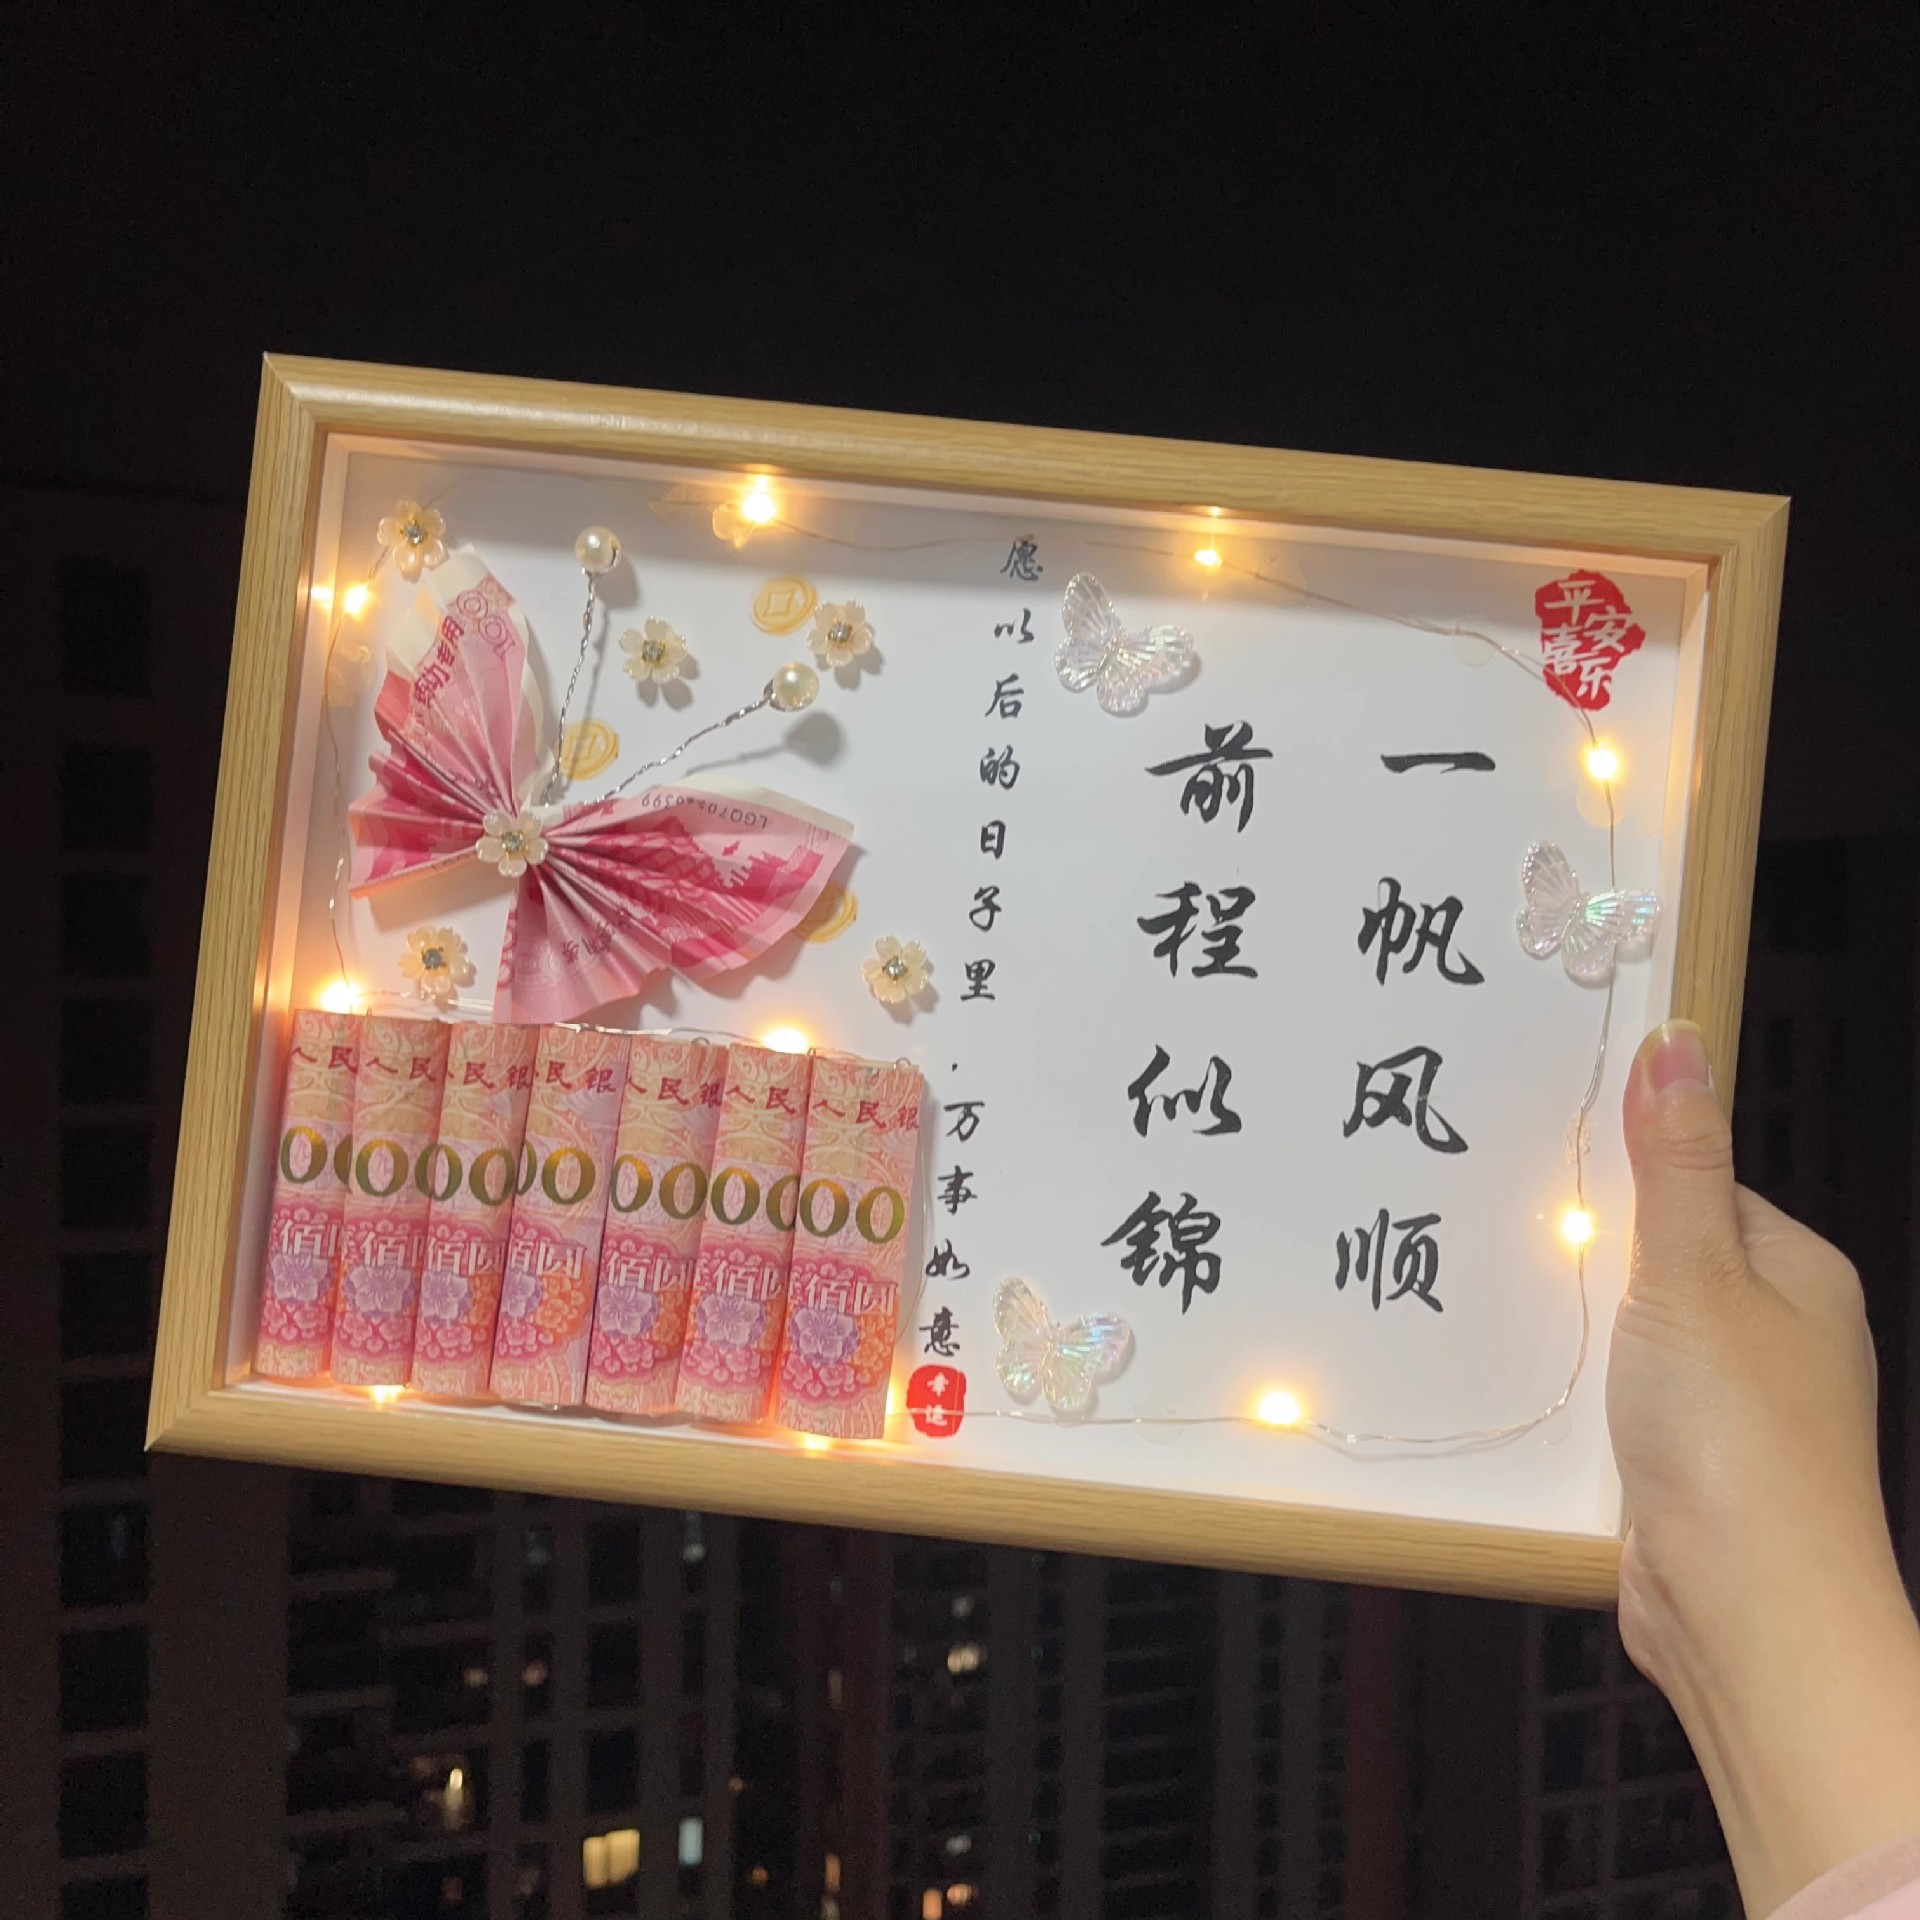 平安
喜乐
一帆风顺
前程似锦
愿以后的日子里,万事如意
幸运
100
LGQ70540399
人民
人民
人民银
民银
人民银
人民
人民银
00
00
00
00
00
00
00
佰
佰
佰
佰圆
佰圆
佰圆
佰圆